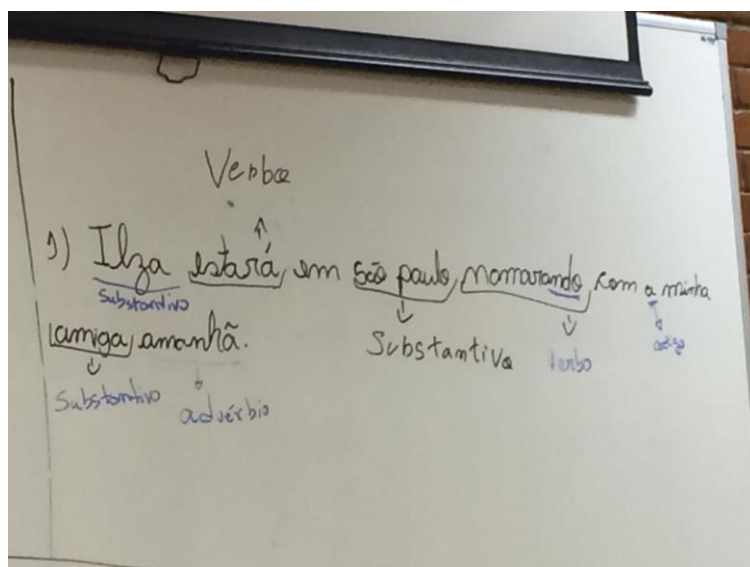 Verbo
1) Ilza estará em São paulo, namorando com a minha
substantivo
amiga amanhã.
Substantivo verbo artigo
Substantivo advérbio